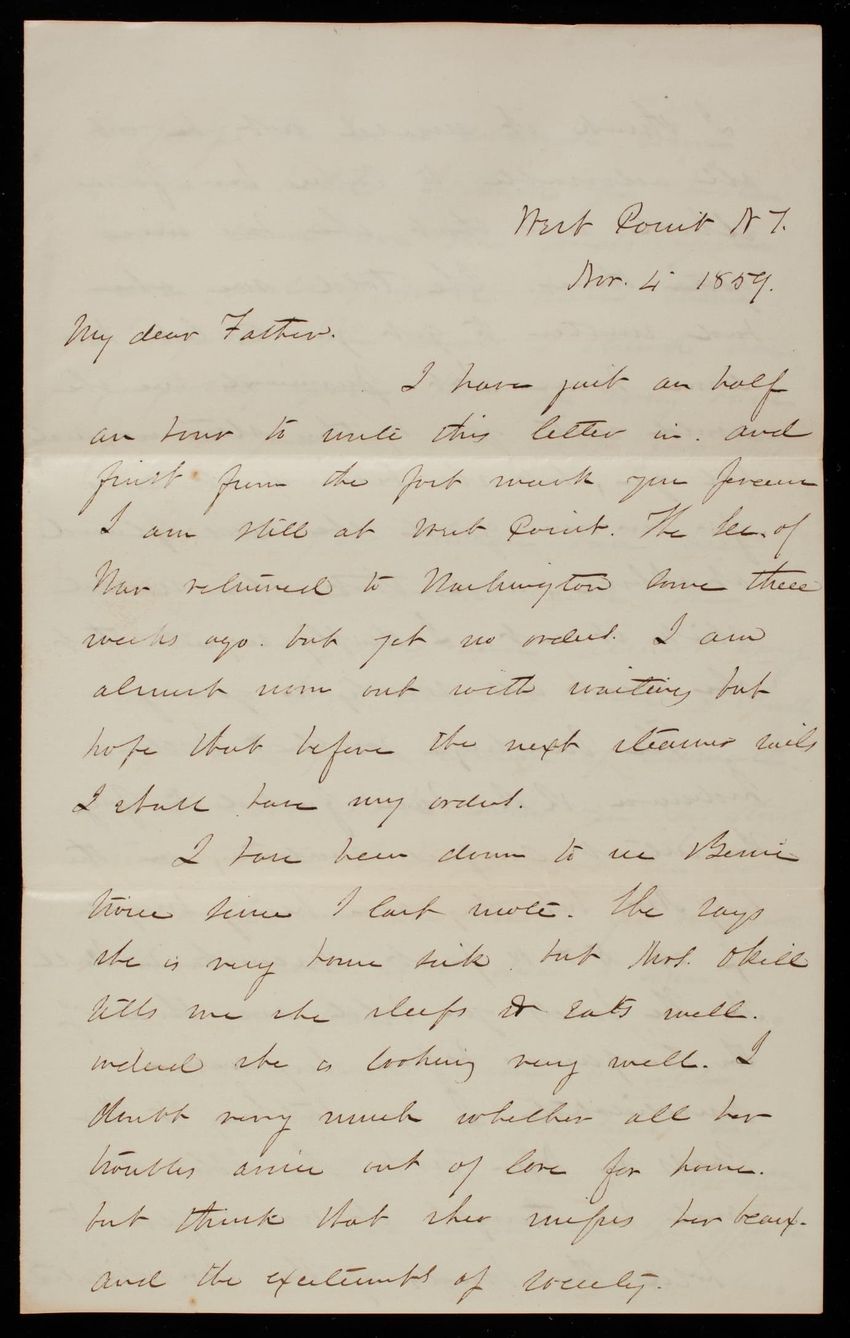 West Point N Y.
Nov. 4 1859.
My dear Father.
I have just an half
an hour to write this letter in. and
first from the post mark you perceive
I am still at West Point. The Sec. of
War returned to Washington some three
weeks ago. but yet no orders. I am
almost worn out with waiting but
hope that before the next steamer sails
I shall have my orders.
I have been down to see Bernie
twice since I last wrote. She says
she is very home sick. but Mrs. Okill
tells me she sleeps & eats well.
indeed she is looking very well. I
doubt very much whether all her
troubles arise out of love for home.
but think that she misses her beaux.
and the excitements of society.